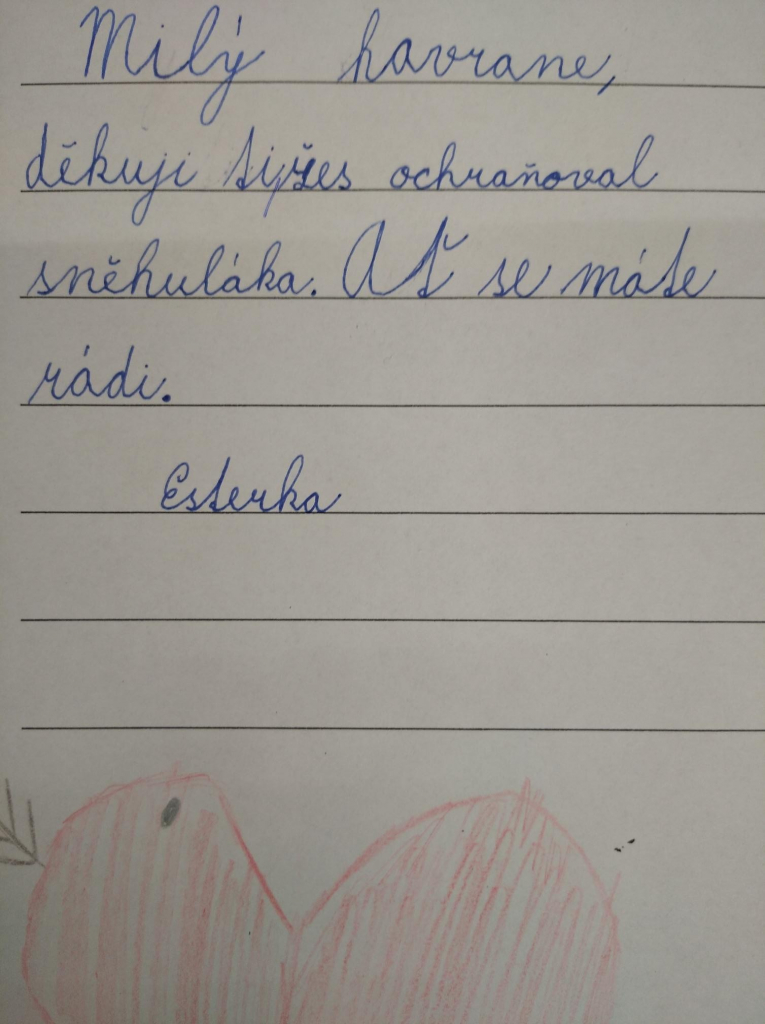 Milý havrane,
děkuji ti,žes ochraňoval
sněhuláka. Ať se máte
rádi.
Esterka